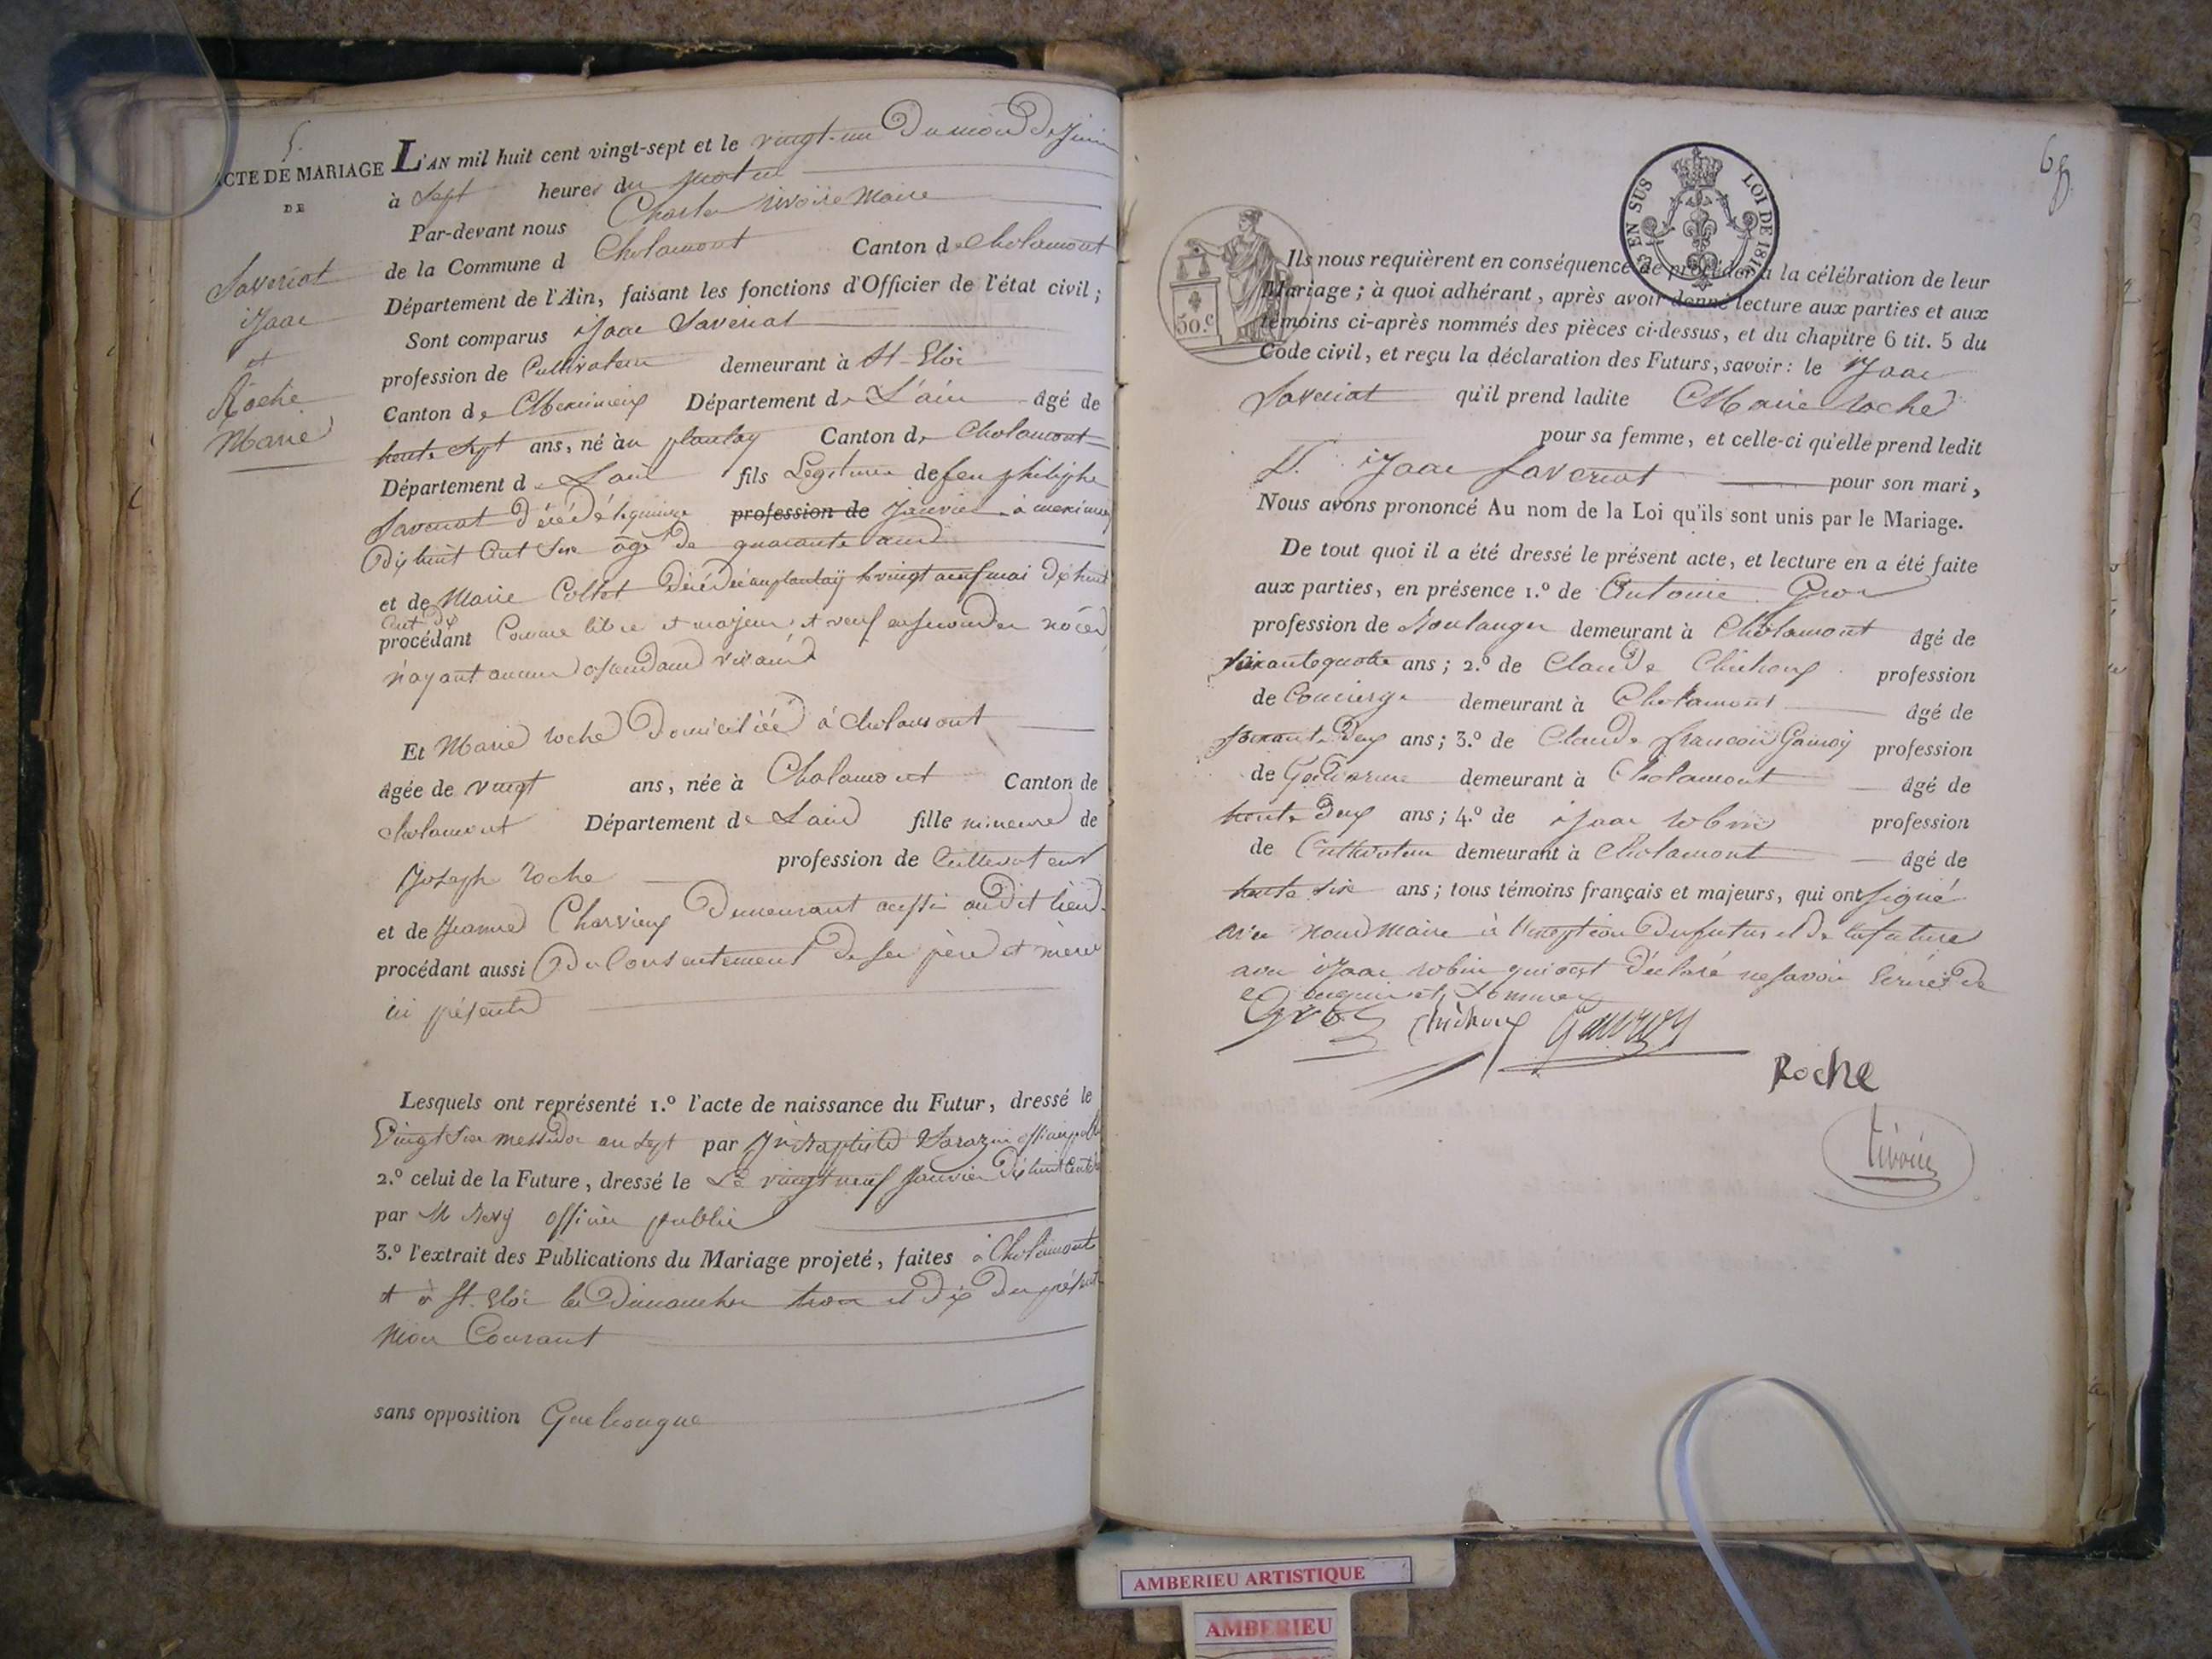 5.
ACTE DE MARIAGE
DE
Saveriat
isaac
et
Roche
Marie
L'AN mil huit cent vingt-sept et le vingt-un du mois de Juin
à Sept heures du matin
Par-devant nous Charles rivoire Maire
de la Commune d Chalamont Canton de Chalamont
Département de l'Ain, faisant les fonctions d'Officier de l'état civil;
Sont comparus isaac Saveriat
profession de Cultivateur demeurant à St-Eloi
Canton de Meximieux Département de L'ain âgé de
trente Sept ans, né au plantay Canton de Chalamont
Département de Lain fils Légitime de feu philiphe
Saveriat décédé le quinze profession de Janvier à meximieux
Dix huit Cent Six âgé de quarante ans
et de Marie Collet décédée au plantay le vingt neuf mai dix huit
Cent dix
procédant Comme libre et majeur et veuf en secondes noces
n'ayant aucun ascendans vivans
Et Marie roche Domiciliée à chalamont
âgée de vingt ans, née à Chalamont Canton de
chalamont Département de Lain fille mineure de
Joseph roche profession de Cultivateur
et de Jeanne Charvieux Demeurant aussi audit lieu
procédant aussi Du Consentement de ses père et mère
ici présents
Lesquels ont représenté 1.º l'acte de naissance du Futur, dressé le
Vingt Six messidor an sept par Jn Baptiste Sarazin
2.º celui de la Future, dressé le Le vingt neuf Janvier Dix huit Cent
par M officier public
3.º l'extrait des Publications du Mariage projeté, faites à Chalamont
et à St. Eloi les Dimanches trois et dix du présent
Mois Courant
sans opposition Quelconque
68
EN SUS LOI DE 1816
50.c
Ils nous requièrent en conséquence de procéder à la célébration de leur
Mariage; à quoi adhérant, après avoir donné lecture aux parties et aux
témoins ci-après nommés des pièces ci-dessus, et du chapitre 6 tit. 5 du
Code civil, et reçu la déclaration des Futurs, savoir: le isaac
Saveriat qu'il prend ladite Marie roche
pour sa femme, et celle-ci qu'elle prend ledit
S. isaac Saveriat pour son mari,
Nous avons prononcé Au nom de la Loi qu'ils sont unis par le Mariage.
De tout quoi il a été dressé le présent acte, et lecture en a été faite
aux parties, en présence 1.º de Antoine Gros
profession de Boulanger demeurant à Chalamont âgé de
Soixante quatre ans; 2.º de Claude profession
de Concierge demeurant à Chalamont âgé de
Soixante Deux ans; 3.º de Claude francois profession
de Gendarme demeurant à Chalamont âgé de
trente Deux ans; 4.º de isaac robin profession
de Cultivateur demeurant à Chalamont âgé de
trente Six ans; tous témoins français et majeurs, qui ont signé
avec nous Maire à l'exception du futur et de la future
avec isaac robin qui ont déclaré ne savoir écrire de
ce enquis et Sommés
Gros
Roche
rivoire
AMBERIEU ARTISTIQUE
AMBERIEU